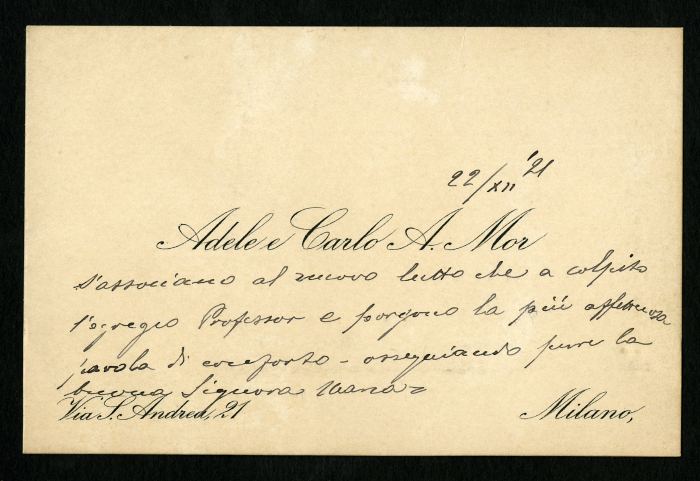 22/XII '21
Adele e Carlo A. Mor
s'associano al nuovo lutto che a colpito
l'egregio Professor e porgono la più affettuosa
parola di conforto - ossequiando pure la
buona Signora
Via S. Andrea, 21 Milano,